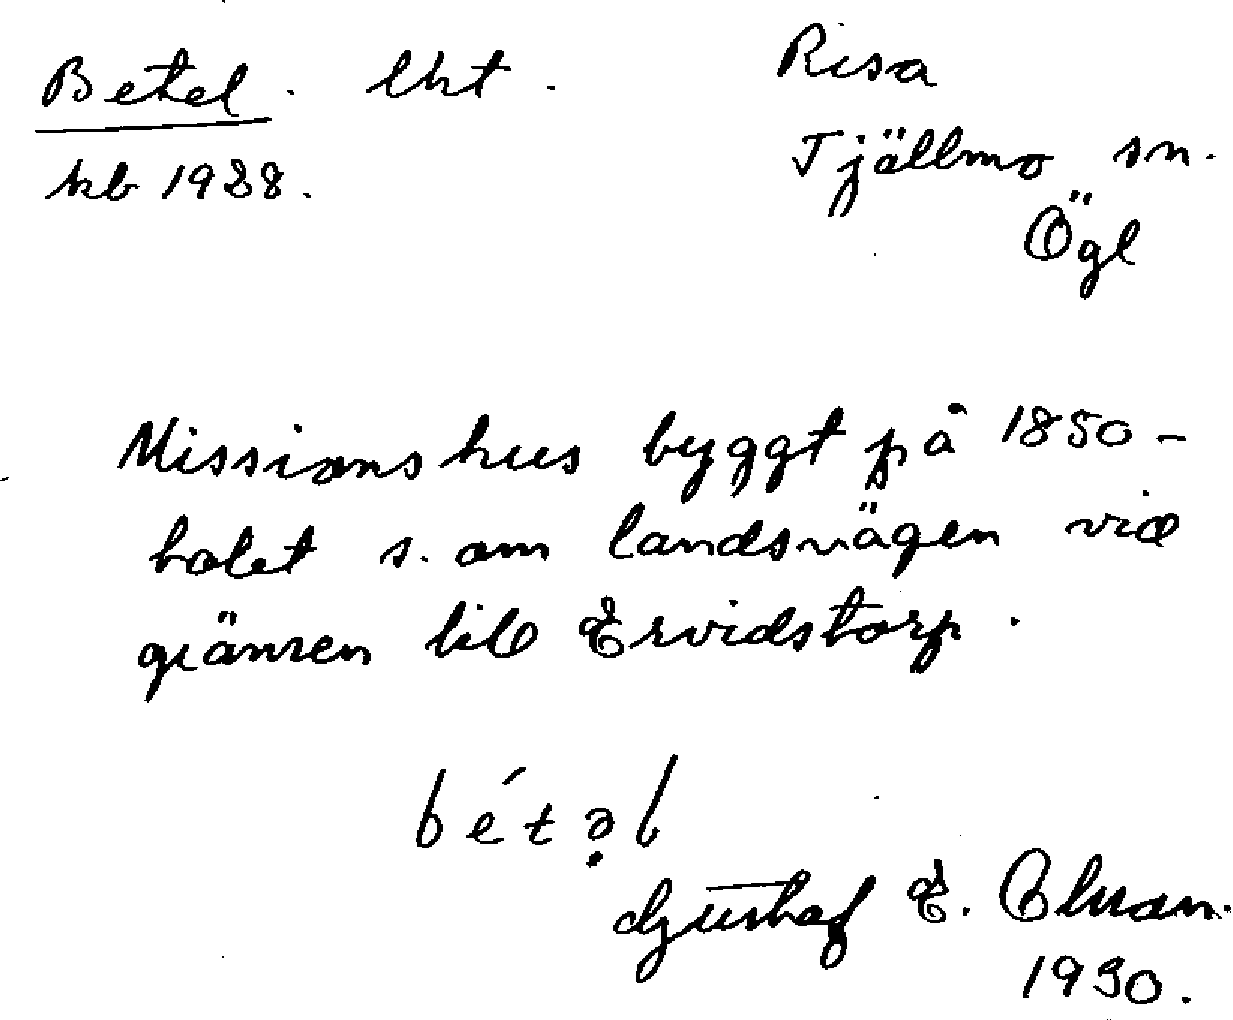 Betel. lht.
kb 1928.
Risa
Tjällmo sn.
Ögl
Missionshus byggt på 1850-
talet s. om landsvägen vid
gränsen till Ervidstorp.
bétəl
Gustaf E.
1930.